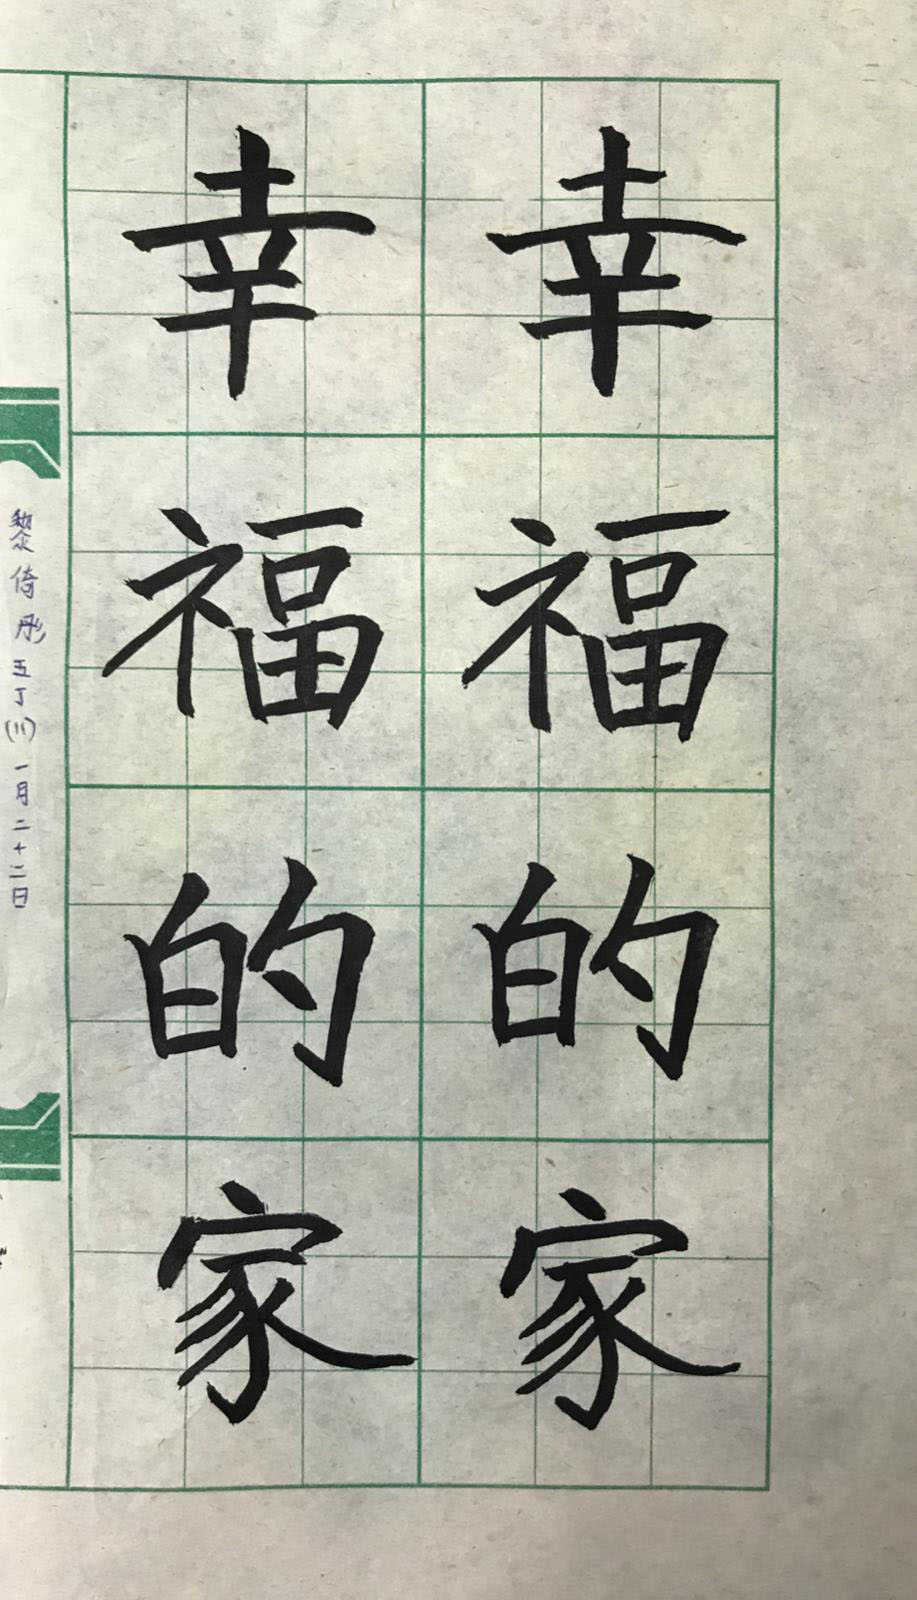 幸福的家
幸福的家
黎倚彤五丁(川)一月二十二日